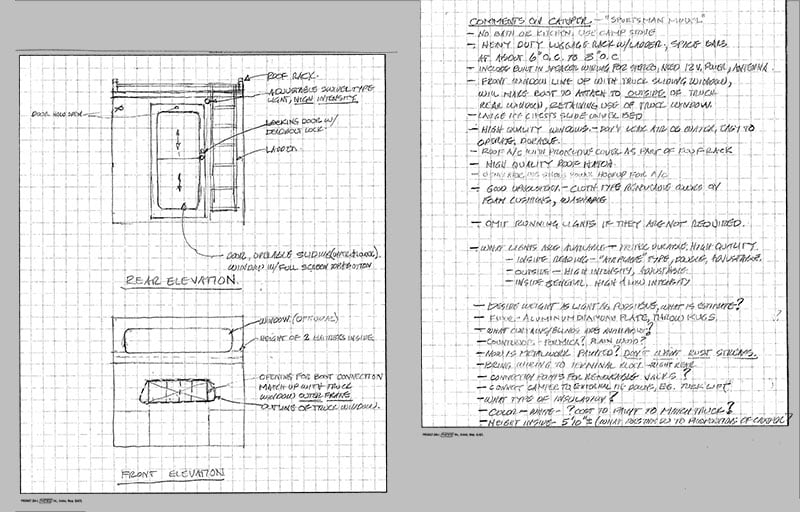 ROOF RACK.
ADJUSTABLE SWIVEL TYPE
LIGHT, HIGH INTENSITY
DOOR HOLD OPEN
LOCKING DOOR W/
DEADBOLT LOCK.
LADDER
DOOR, OPERABLE SLIDING
WINDOW W/ FULL SCREEN
REAR ELEVATION.
WINDOW (OPTIONAL)
HEIGHT OF 2 INSIDE
OPENING FOR BOOT CONNECTION
MATCH UP WITH TRUCK
WINDOW OUTER FRAME
OUTLINE OF TRUCK WINDOW.
FRONT ELEVATION
COMMENTS ON CAMPER - "SPORTSMAN MODEL"
- NO BATH OR KITCHEN, USE CAMP STOVE
- HEAVY DUTY LUGGAGE RACK W/LADDER, SPACE BARS
AT ABOUT 6" O.C. TO 8" O.C.
- INCLUDE BUILT IN SPEAKER WIRING FOR STEREO, NEED 12V. POWER, ANTENNA.
- FRONT WINDOW LINE UP WITH TRUCK SLIDING WINDOW,
WILL MAKE BOOT TO ATTACH TO OUTSIDE OF TRUCK
REAR WINDOW, RETAINING USE OF TRUCK WINDOW
- LARGE ICE CHESTS SLIDE UNDER BED
- HIGH QUALITY WINDOWS - DON'T LEAK AIR OR WATER, EASY TO
OPERATE, DURABLE.
- ROOF A/C WITH PROTECTIVE COVER AS PART OF ROOF RACK
- HIGH QUALITY ROOF HATCH.
HOOKUP FOR A/C
- GOOD UPHOLSTERY - CLOTH TYPE REMOVABLE COVERS ON
FOAM CUSHIONS, WASHABLE
- OMIT RUNNING LIGHTS IF THEY ARE NOT REQUIRED.
- WHAT LIGHTS ARE AVAILABLE - PREFER DURABLE, HIGH QUALITY.
- INSIDE READING - "AIRPLANE" TYPE, DOUBLE, ADJUSTABLE.
- OUTSIDE - HIGH INTENSITY, ADJUSTABLE
- INSIDE GENERAL, HIGH & LOW INTENSITY
- DESIRE WEIGHT AS LIGHT AS POSSIBLE, WHAT IS ESTIMATE?
- FLOOR - ALUMINUM DIAMOND PLATE, THROW RUGS.
- WHAT CURTAINS/BLINDS ARE AVAILABLE?
- COUNTERTOP - FORMICA? PLAIN WOOD?
- HOW IS METALWORK PAINTED? DON'T WANT RUST STREAKS.
- BRING WIRING TO TERMINAL BLOCK - RIGHT REAR
- CONNECTION POINTS FOR REMOVABLE JACKS?
- CONVERT CAMPER TO EXTERNAL TIE DOWNS, EG. TUCK LIFT.
- WHAT TYPE OF INSULATION?
- COLOR - WHITE - ? COST TO PAINT TO MATCH TRUCK?
- HEIGHT INSIDE - 5'10"±